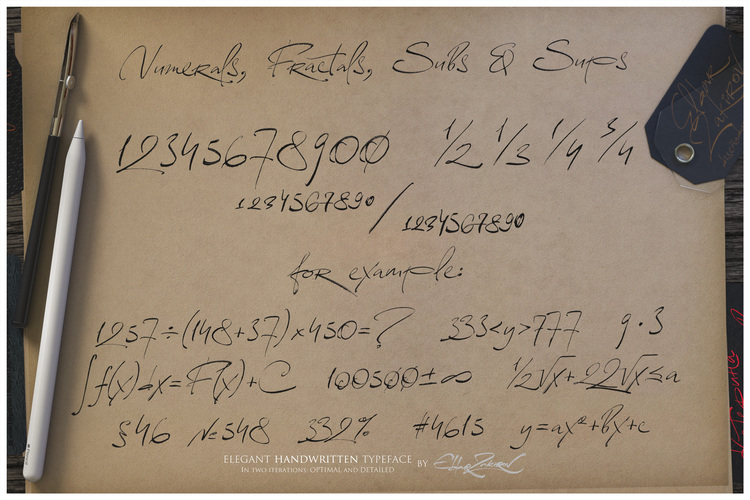 Numerals, Fractals, Subs & Sups
12345678900 1/2 1/3 1/4 3/4
1234567890 / 1234567890
for example:
1257÷(148+37)×450=? 333<y>777 9·3
∫f(x)dx=F(x)+C 100500±∞ 1/2√x+22√x≤a
§46 №548 332% #4615 y=ax²+bx+c
ELEGANT HANDWRITTEN TYPEFACE BY
IN TWO ITERATIONS: OPTIMAL AND DETAILED